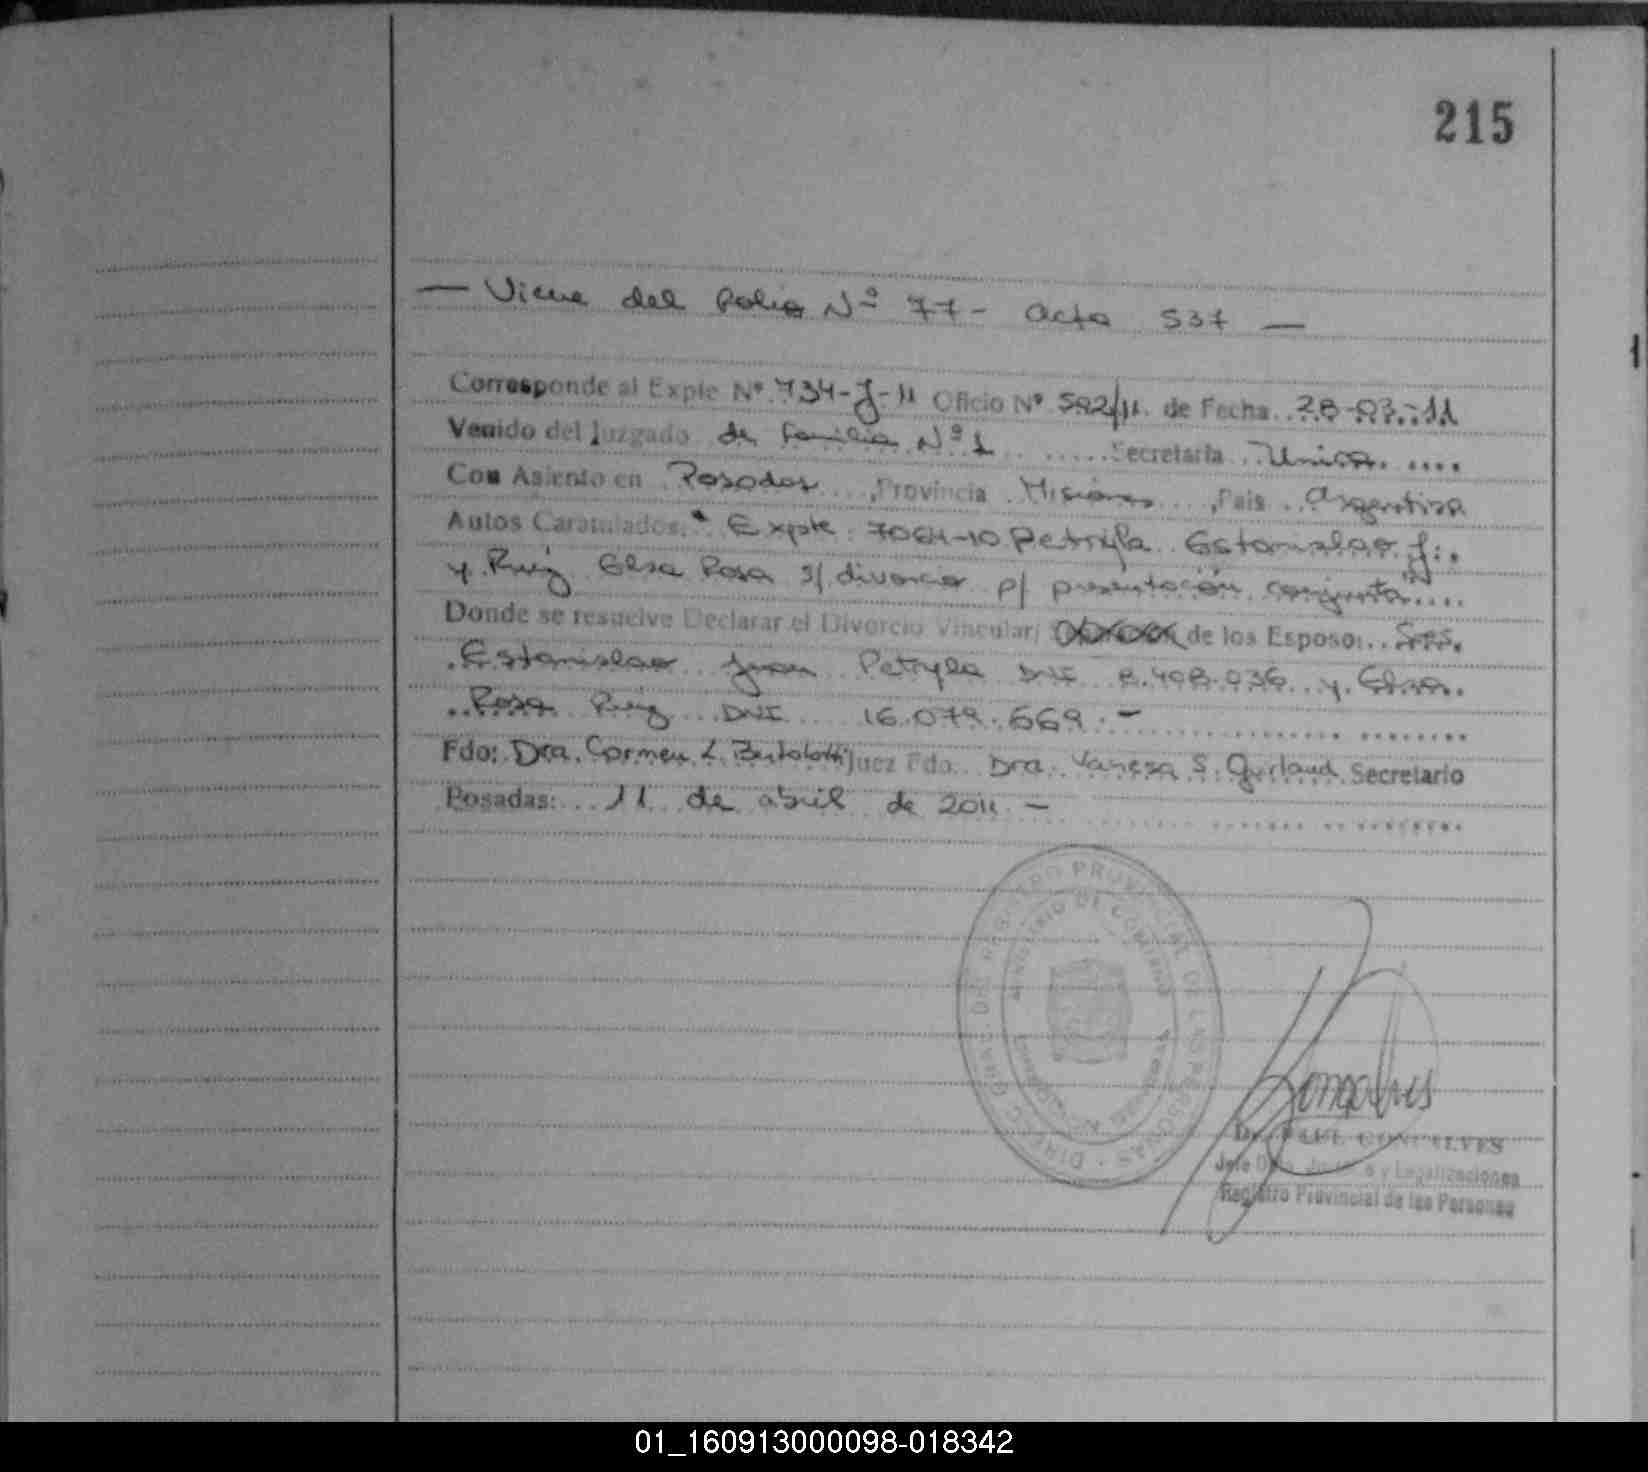 215
— Viene del Folio Nº 77 - Acta 537 —
Corresponde al Expte Nº 734-J-11 Oficio Nº 592/11. de Fecha 28-03-11
Venido del Juzgado de Familia Nº 1 Secretaria Unica
Con Asiento en Posadas, Provincia Misiones, Pais Argentina
Autos Caratulados: "Expte: 7064-10 Petryla Estanislao J.
y Ruiz Elsa Rosa s/ divorcio p/ presentación conjunta"
Donde se resuelve Declarar el Divorcio Vincular; de los Esposo: Sres.
Estanislao Juan Petryla DNI 8.408.036 y Elsa
Rosa Ruiz DNI 16.079.669.-
Fdo: Dra. Carmen L. Bertolotti Juez Fdo. Dra. Vanesa S. Gurlaud Secretario
Posadas: 11 de abril de 2011 -
DIRECC GRAL. DEL REGISTRO PROVINCIAL DE LAS PERSONAS
MINISTERIO DE GOBIERNO
Goncalves
GONCALVES
Jefe y Legalizaciones
Registro Provincial de las Personas
01_160913000098-018342